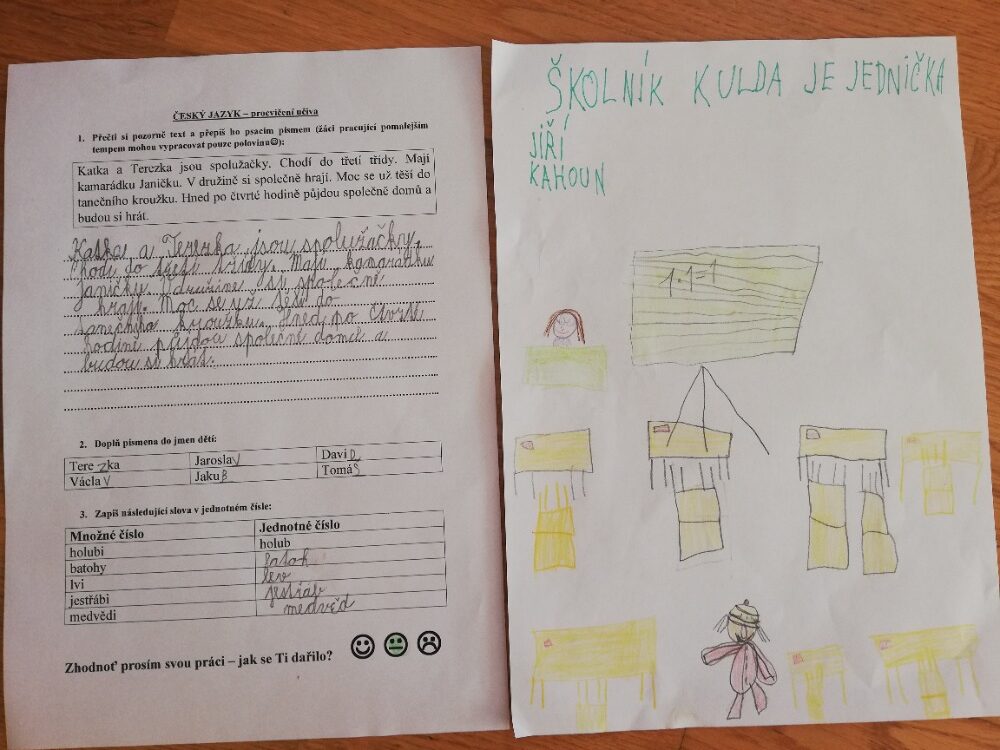 ČESKÝ JAZYK – procvičení učiva
1. Přečti si pozorně text a přepiš ho psacím písmem (žáci pracující pomalejším
tempem mohou vypracovat pouze polovinu☺):
Katka a Terezka jsou spolužačky. Chodí do třetí třídy. Mají
kamarádku Janičku. V družině si společně hrají. Moc se už těší do
tanečního kroužku. Hned po čtvrté hodině půjdou společně domů a
budou si hrát.
Katka a Terezka jsou spolužačky.
Chodí do třetí třídy. Mají kamarádku
Janičky. V družině si společně
hrají. Moc se už těší do
tanečního kroužku. Hned po čtvrté
hodině půjdou společně domů a
budou si hrát.
2. Doplň písmena do jmen dětí:
Terezka Jaroslav David
Václav Jakub Tomáš
3. Zapiš následující slova v jednotném čísle:
Množné číslo Jednotné číslo
holubi holub
batohy batoh
lvi lev
jestřábi jestřáb
medvědi medvěd
Zhodnoť prosím svou práci – jak se Ti dařilo?
ŠKOLNÍK KULDA JE JEDNIČKA
JIŘÍ
KAHOUN
1·1=1